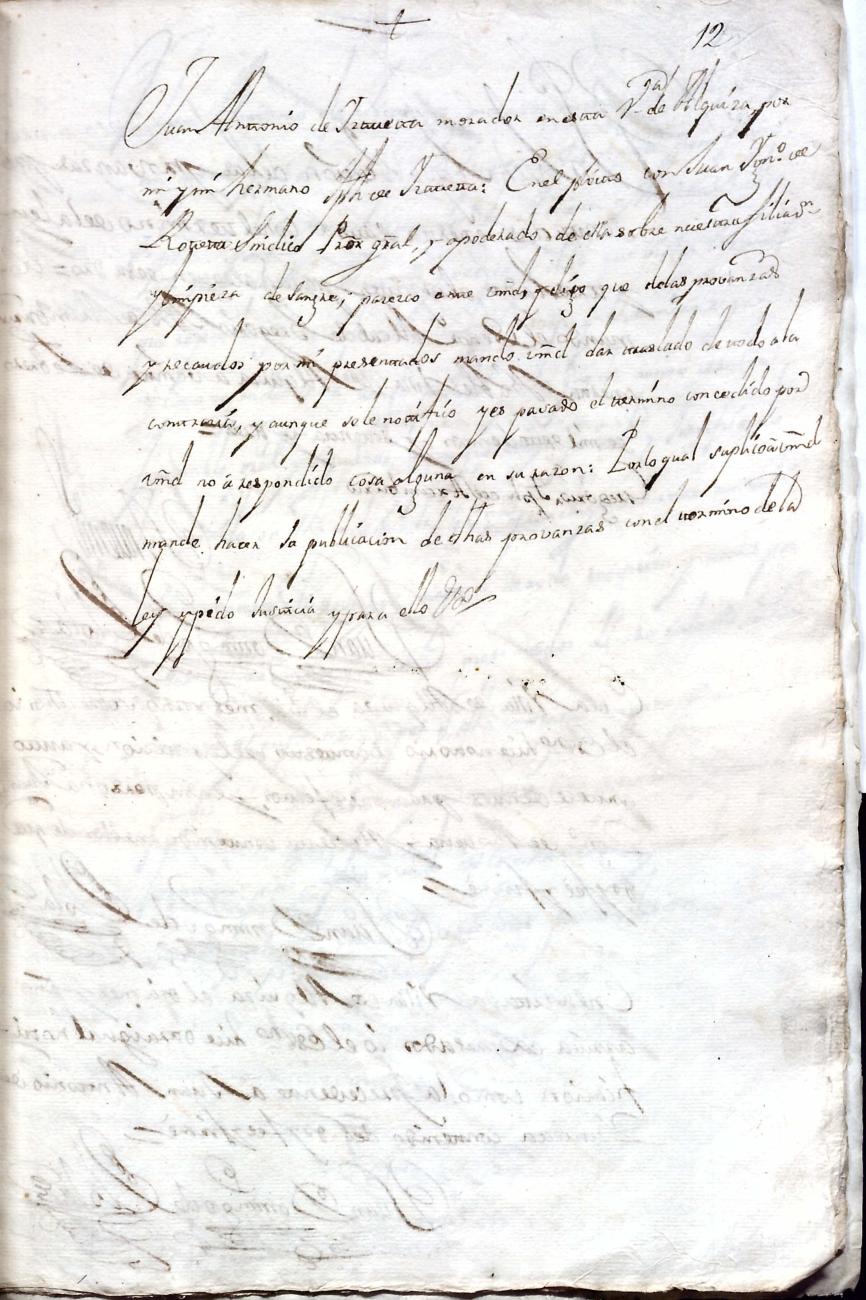 +
12
Juan Antonio de Yraueta morador en esta Vª de Alquiza, por
mi y mi hermano Jph de Yraueta: En el pleito con Juan de
Roxeta Sindico Pror gral, y apoderado de ella sobre nuestra filiaōn
y limpieza de sangre; parezco ante vmd, y digo que de las provanzas
y recaudos por mi presentados mando vmd dar traslado de todo a la
contraria, y aunque se le notifico y es pasado el termino concedido por
vmd no á respondido cosa alguna en su razon: Por lo qual suplico a vmd
mande hacer la publicacion de dhas provanzas con el termino de la
ley y pido Justicia y para ello